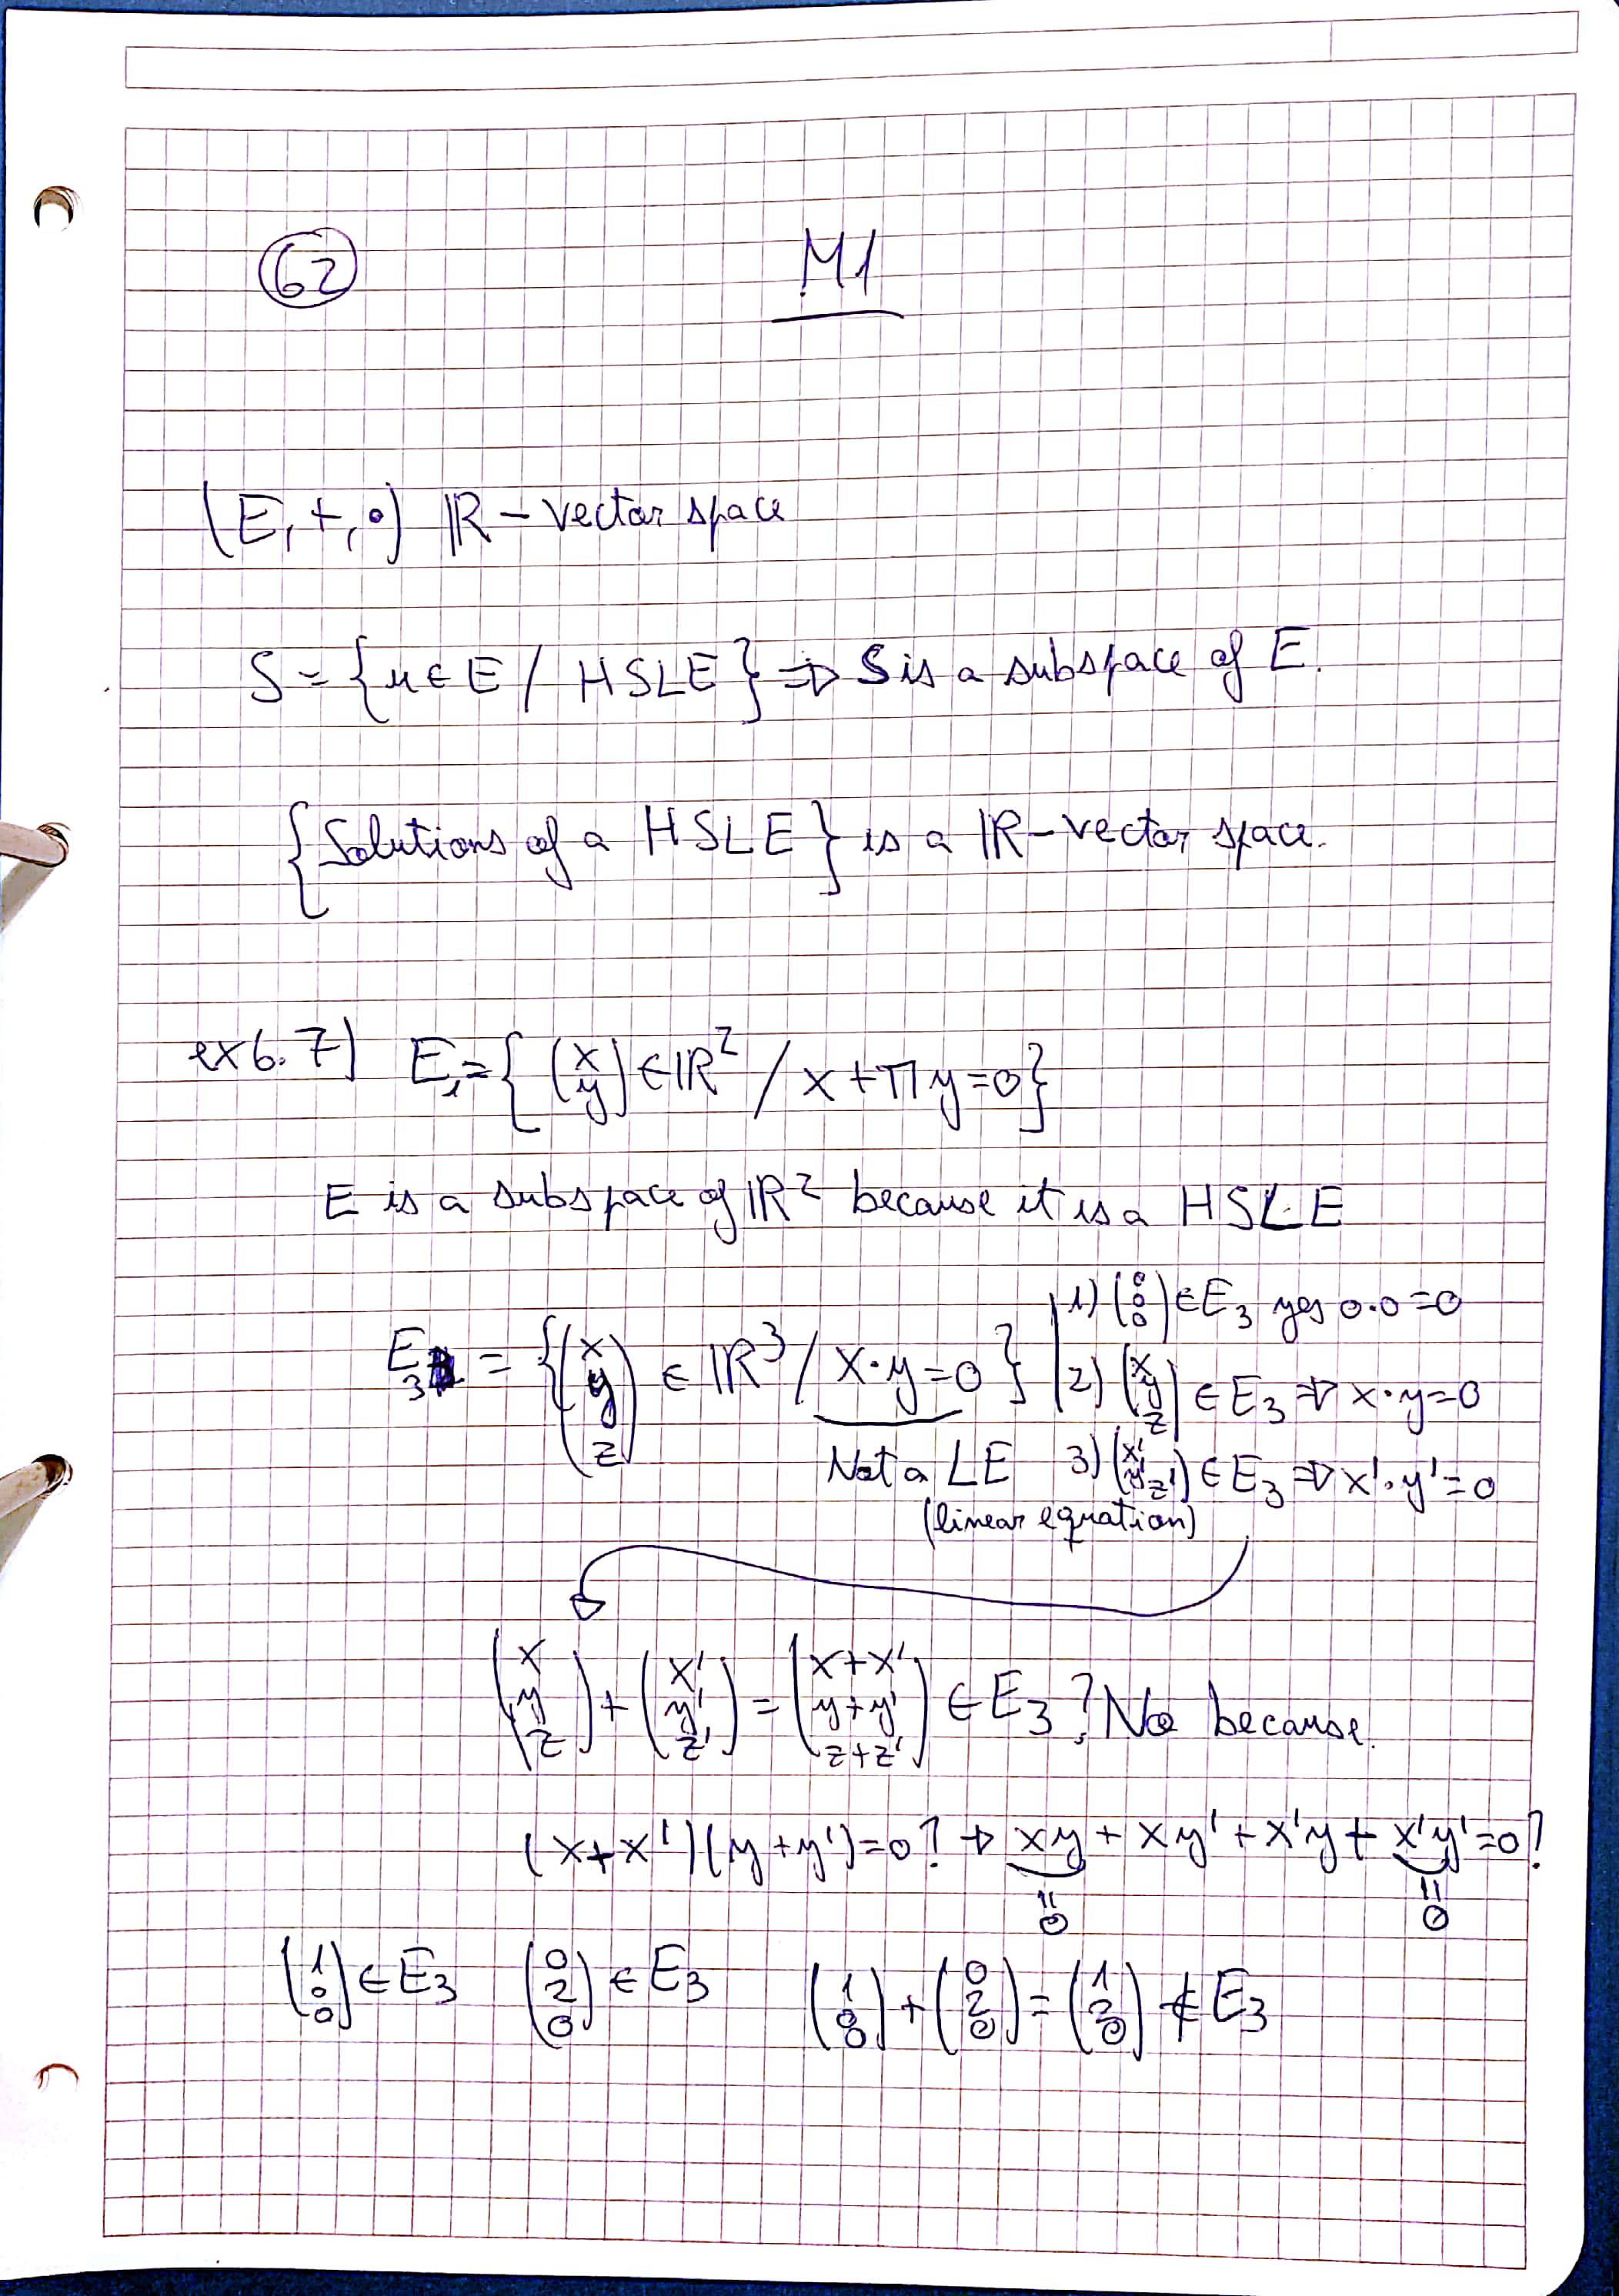 62 M1
(E, +, ∘) ℝ - vector space
S = {u ∈ E / HSLE} ⇒ S is a subspace of E.
{Solutions of a HSLE} is a ℝ-vector space.
ex 6.7) E₁ = { (x y) ∈ ℝ² / x + π y = 0 }
E is a subspace of ℝ² because it is a HSLE
E₃ = { (x y z) ∈ ℝ³ / x·y = 0 }
Not a LE
(linear equation)
1) (0 0 0) ∈ E₃ yes 0·0 = 0
2) (x y z) ∈ E₃ ⇒ x·y = 0
3) (x' y' z') ∈ E₃ ⇒ x'·y' = 0
(x y z) + (x' y' z') = (x+x' y+y' z+z') ∈ E₃? No because.
(x+x')(y+y') = 0? ⇒ xy + xy' + x'y + x'y' = 0?
= 0 = 0
(1 0 0) ∈ E₃ (0 2 0) ∈ E₃ (1 0 0) + (0 2 0) = (1 2 0) ∉ E₃